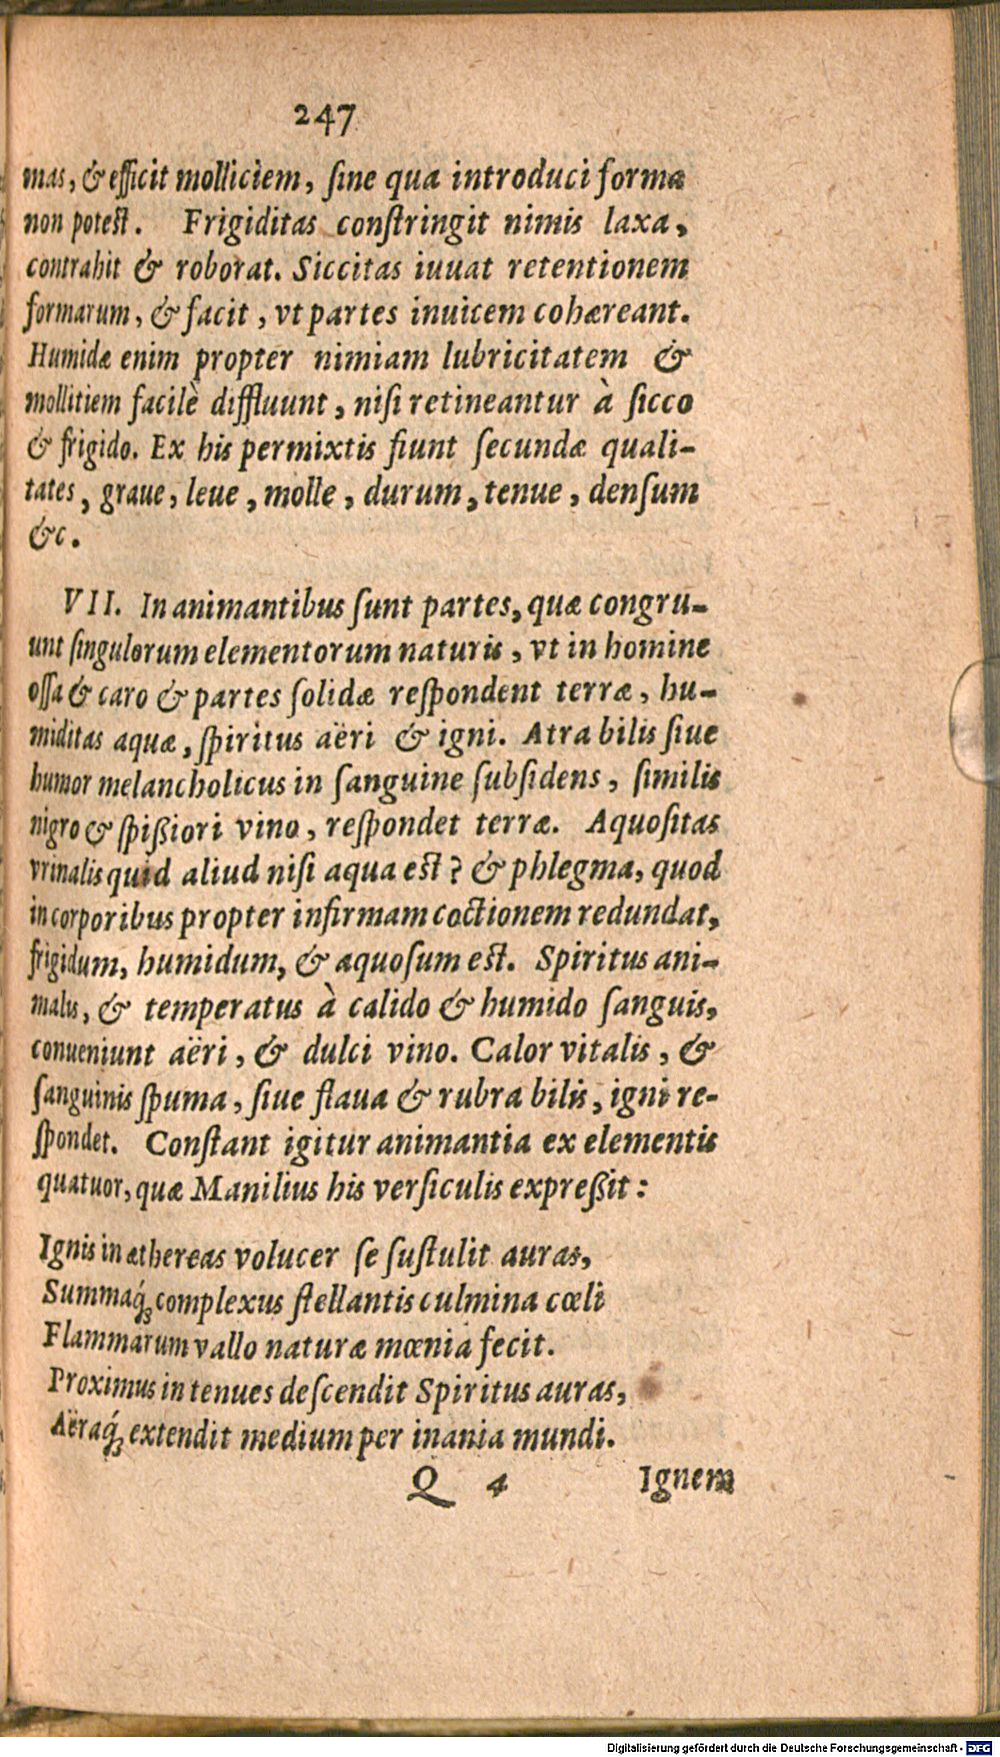 247
mas, & efficit molliciem, ſine qua introduci forma
non poteſt. Frigiditas conſtringit nimis laxa,
contrahit & roborat. Siccitas iuuat retentionem
formarum, & facit, vt partes inuicem cohæreant.
Humidæ enim propter nimiam lubricitatem &
mollitiem facilè diffluunt, niſi retineantur à ſicco
& frigido. Ex his permixtis fiunt ſecundæ quali-
tates, graue, leue, molle, durum, tenue, denſum
&c.
VII. In animantibus ſunt partes, quæ congru-
unt ſingulorum elementorum naturis, vt in homine
oſſa & caro & partes ſolidæ reſpondent terræ, hu-
miditas aquæ, ſpiritus aëri & igni. Atra bilis ſiue
humor melancholicus in ſanguine ſubſidens, ſimilis
nigro & ſpißiori vino, reſpondet terræ. Aquoſitas
vrinalis quid aliud niſi aqua eſt? & phlegma, quod
in corporibus propter infirmam coctionem redundat,
frigidum, humidum, & aquoſum eſt. Spiritus ani-
malis, & temperatus à calido & humido ſanguis,
conueniunt aëri, & dulci vino. Calor vitalis, &
ſanguinis ſpuma, ſiue flaua & rubra bilis, igni re-
ſpondet. Conſtant igitur animantia ex elementis
quatuor, quæ Manilius his verſiculis expreßit:
Ignis in æthereas volucer ſe ſuſtulit auras,
Summaq́ꝫ complexus ſtellantis culmina cœli
Flammarum vallo naturæ mœnia fecit.
Proximus in tenues deſcendit Spiritus auras,
Aëraq́ꝫ extendit medium per inania mundi.
Q 4 Ignem
Digitalisierung gefördert durch die Deutsche Forschungsgemeinschaft - DFG